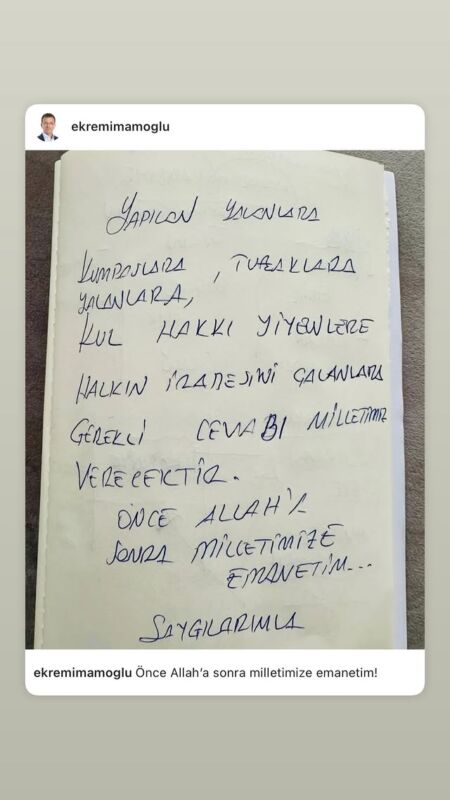 ekremimamoglu
YAPILAN YALANLARA
KUMPASLARA, TUZAKLARA
YALANLARA,
KUL HAKKI YİYENLERE
HALKIN İRADESİNİ ÇALANLARA
GEREKLİ CEVABI MİLLETİMİZ
VERECEKTİR.
ÖNCE ALLAH'A
SONRA MİLLETİMİZE
EMANETİM...
SAYGILARIMLA
ekremimamoglu Önce Allah'a sonra milletimize emanetim!